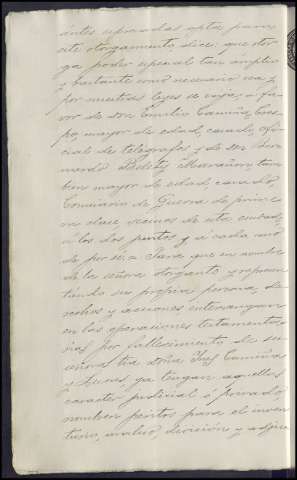 antes expresadas apta para
este otorgamiento, dice: que otor
ga poder especial tan amplio
y bastante como necesario sea y
por nuestras leyes se exija, a fa
vor de don Emilio Camiña, Cres
po, mayor de edad, casado, ofi
cial de telégrafos y de don
Marañon, tam
bien mayor de edad, casado,
Comisario de Guerra de prime
ra clase, vecinos de esta ciudad,
á los dos juntos y á cada uno
de por sí: = Para que en nombre
de la señora otorgante y represen
tando su propia persona, de
rechos y acciones intervengan
en las operaciones testamenta
rias por fallecimiento de su
señora tia Doña Inés Camiña
ya tengan aquellas
carácter judicial ó privado,
nombren peritos para el inven
tario, avaluo, división y adjudi